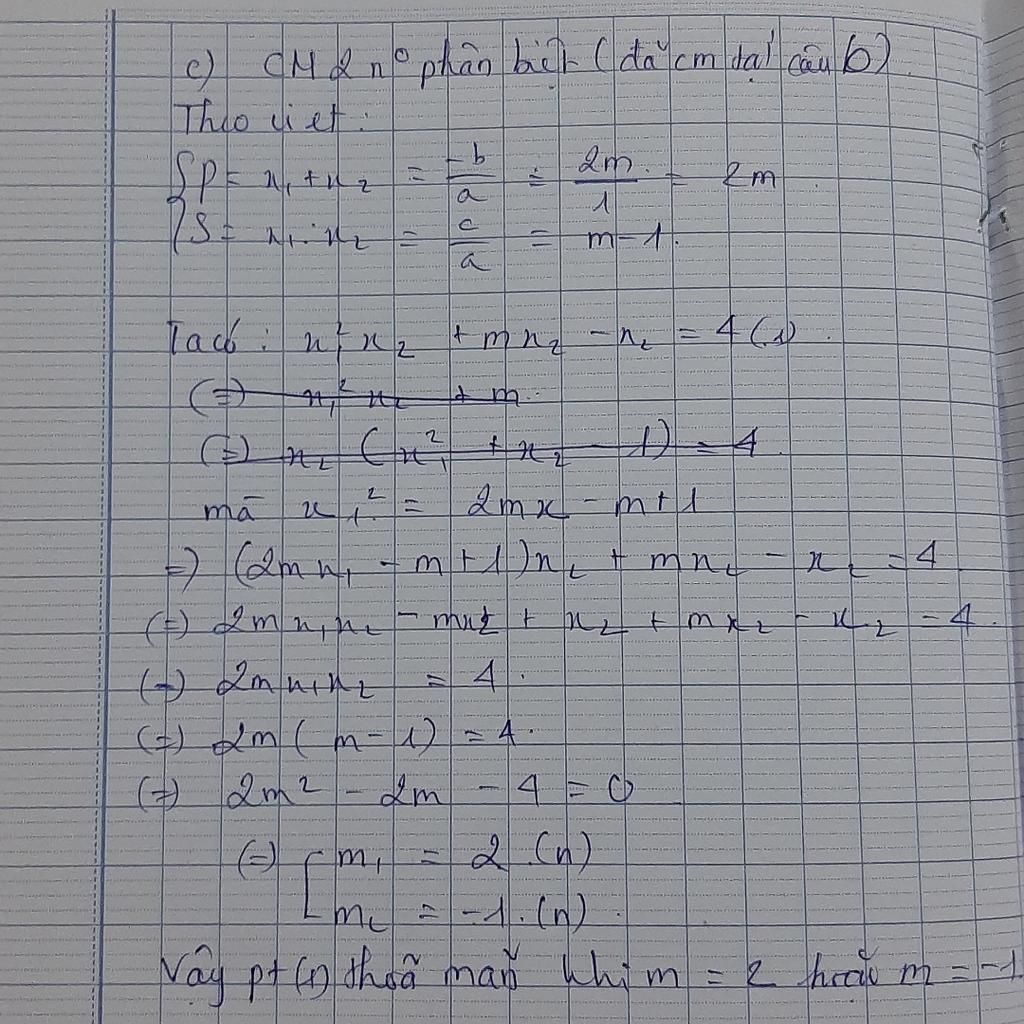 c) CM 2 n° phân biệt (đã cm tại câu b)
Theo viet:
{ P = x₁ + x₂ = -b/a = 2m/1 = 2m
S = x₁ . x₂ = c/a = m - 1.
Ta có : x₁² x₂ + mx₂ - x₂ = 4 (1).
(=) x₁² x₂ + m
(=) x₂ (x₁² + x₂ - 1) = 4
mà x₁² = 2mx - m + 1
=) (2mx₁ - m + 1)x₂ + mx₂ - x₂ = 4
(=) 2mx₁x₂ - mx₂ + x₂ + mx₂ - x₂ = 4.
(=) 2mx₁x₂ = 4.
(=) 2m(m - 1) = 4.
(=) 2m² - 2m - 4 = 0
(=) [ m₁ = 2 (n)
m₂ = -1. (n).
Vây pt (1) thoã mãn khi m = 2 hoặc m = -1.